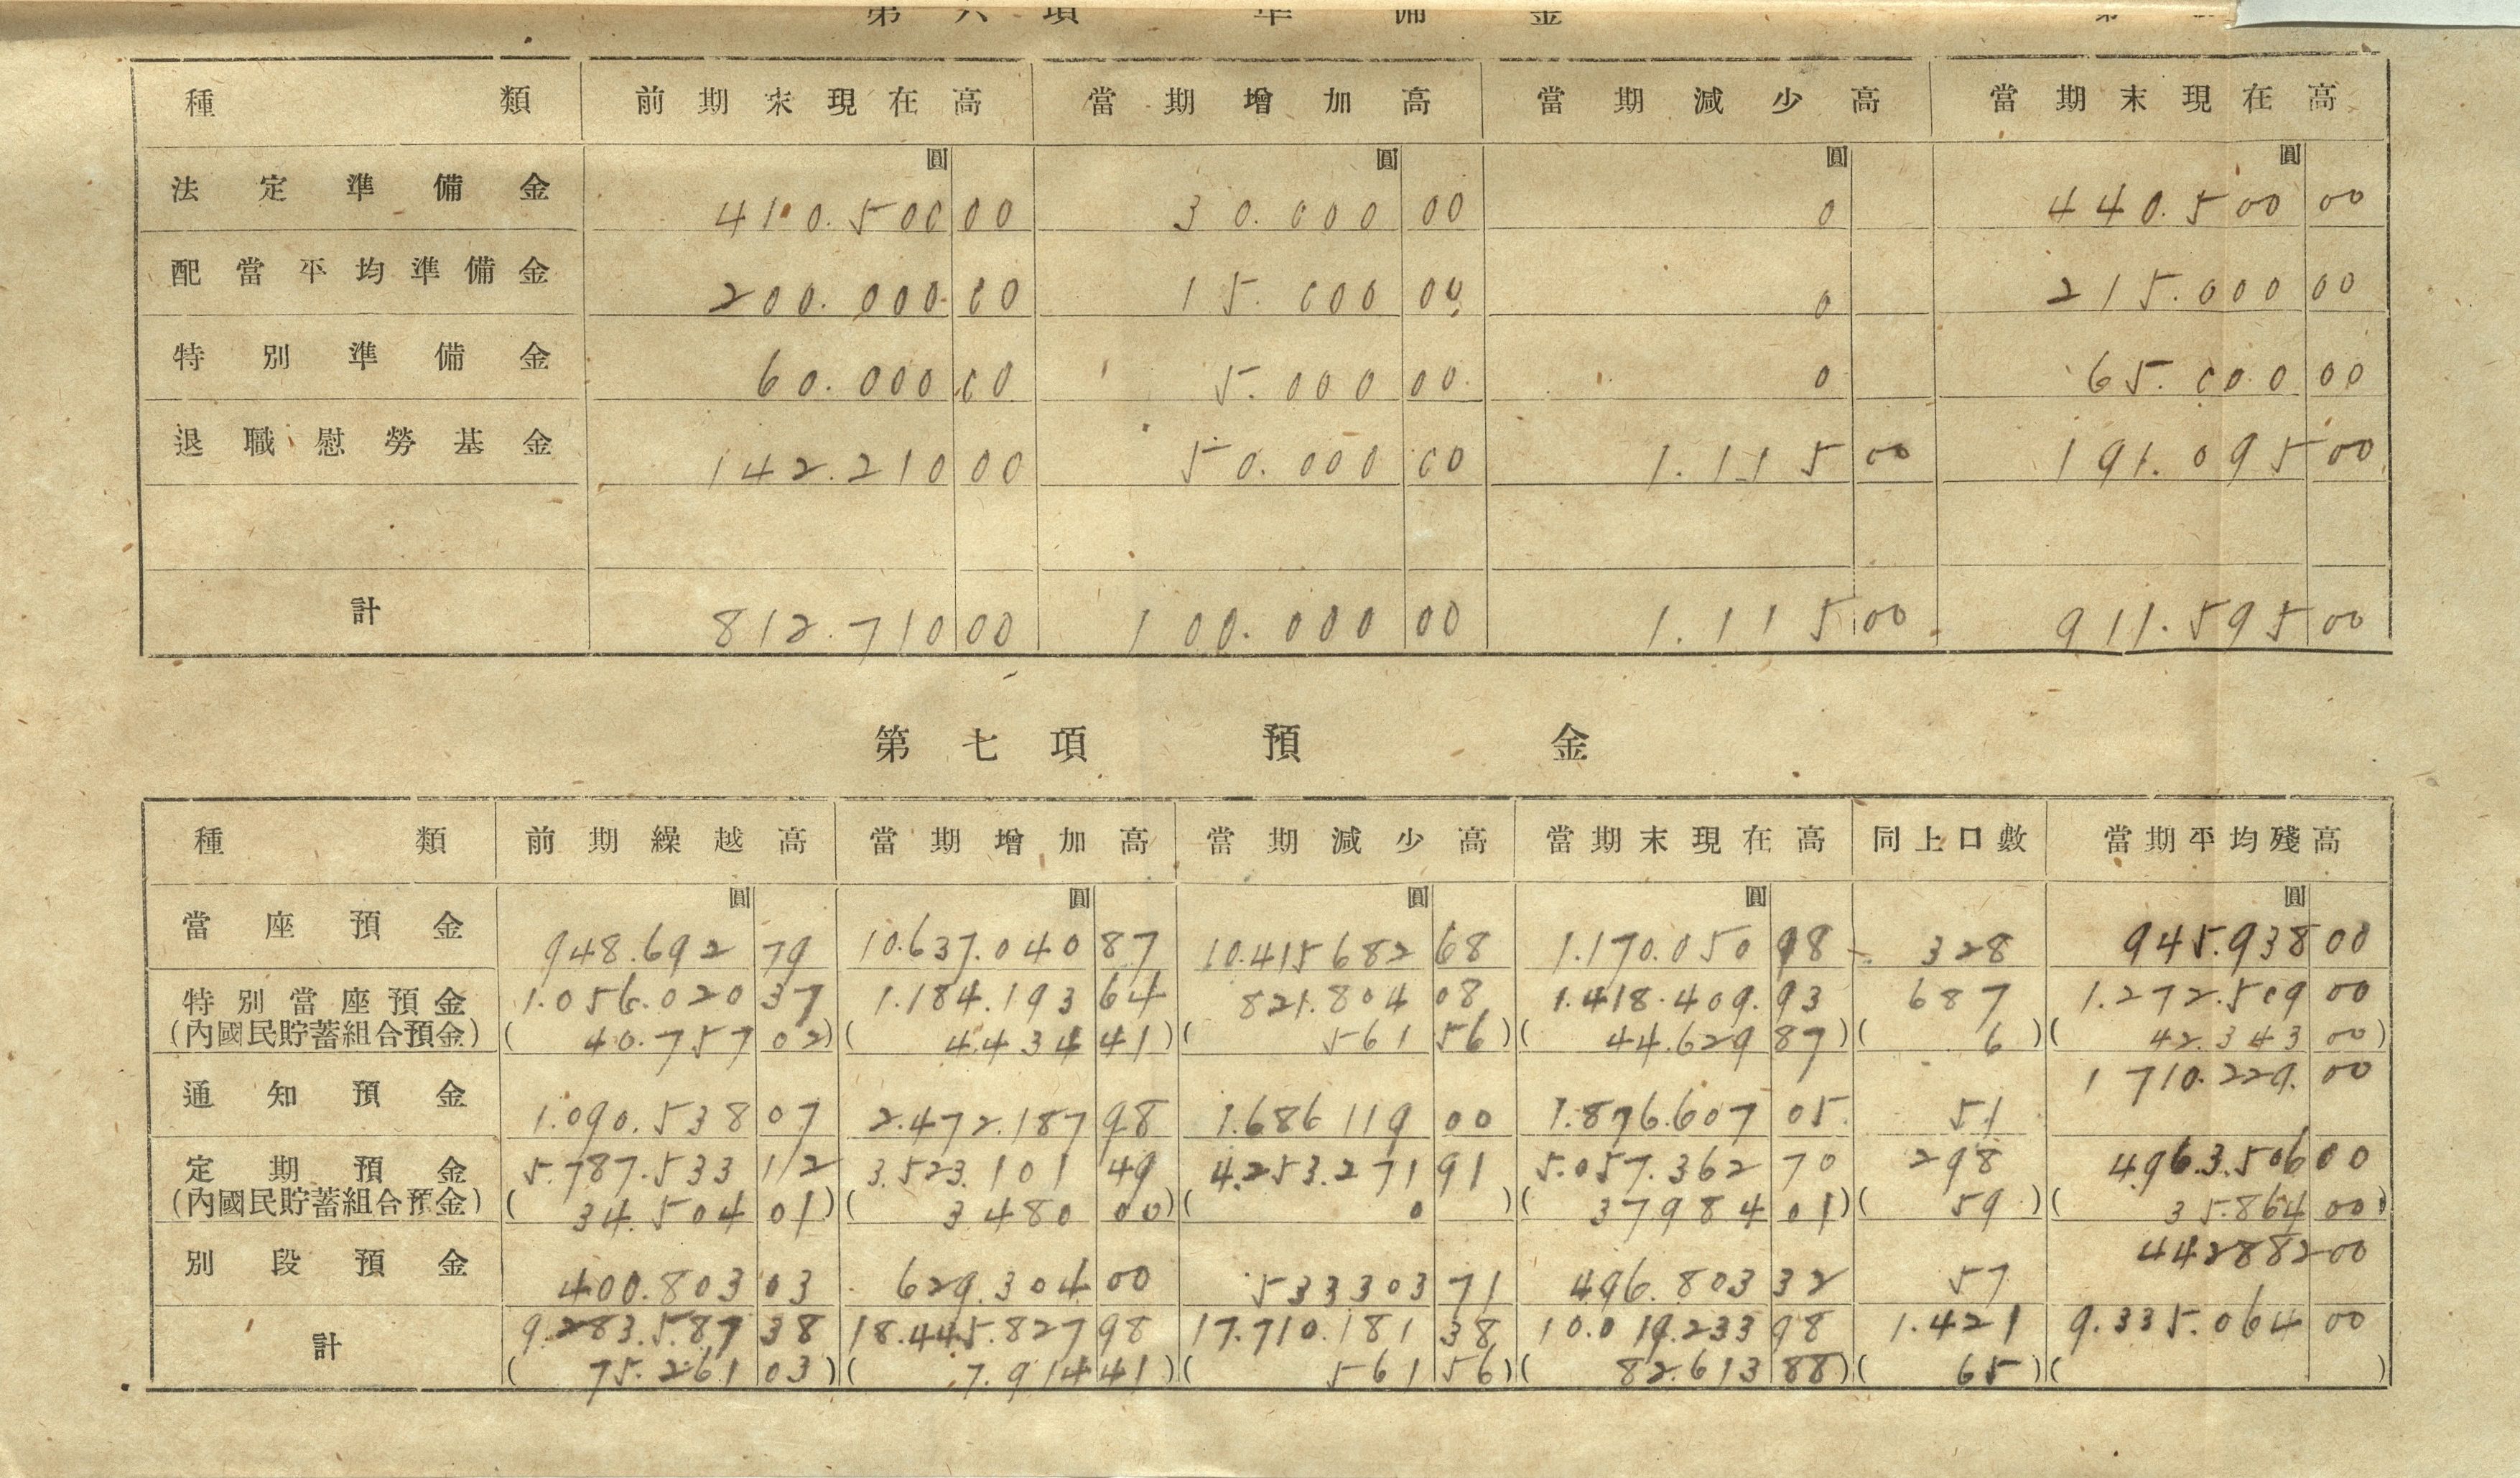 第六項 準備金
種類 前期末現在高 當期增加高 當期減少高 當期末現在高
圓 圓 圓 圓
法定準備金 410.500 00 30.000 00 0 440.500 00
配當平均準備金 200.000 00 15.000 00 0 215.000 00
特別準備金 60.000 00 5.000 00 0 65.000 00
退職慰勞基金 142.210 00 50.000 00 1.115 00 191.095 00
計 812.710 00 100.000 00 1.115 00 911.595 00
第七項 預金
種類 前期繰越高 當期增加高 當期減少高 當期末現在高 同上口數 當期平均殘高
圓 圓 圓 圓 圓
當座預金 948.692 79 10.637.040 87 10.415682 68 1.170.050 98 328 945.938 00
特別當座預金 1.056.020 37 1.184.193 64 821.804 08 1.418.409. 93 687 1.272.509 00
(內國民貯蓄組合預金) (40.757 02) (4.434 41) (561 56) (44.629 87) (6) (42.343 00)
通知預金 1.090.538 07 2.472.187 98 1.686 119 00 1.876.607 05 51 1 710.229. 00
定期預金 5.787.533 12 3.523.101 49 4.253.271 91 5.057.362 70 298 4.963.506 00
(內國民貯蓄組合預金) (34.504 01) (3 480 00) (0) (37984 01) (59) (35.864 00)
別段預金 400.803 03 629.304 00 533303 71 496.803 32 57 442882 00
計 9.283.587 38 18.445.827 98 17.710.181 38 10.019.233 98 1.421 9.335.064 00
(75.261 03) (7.914 41) (561 56) (82.613 88) (65) ( )